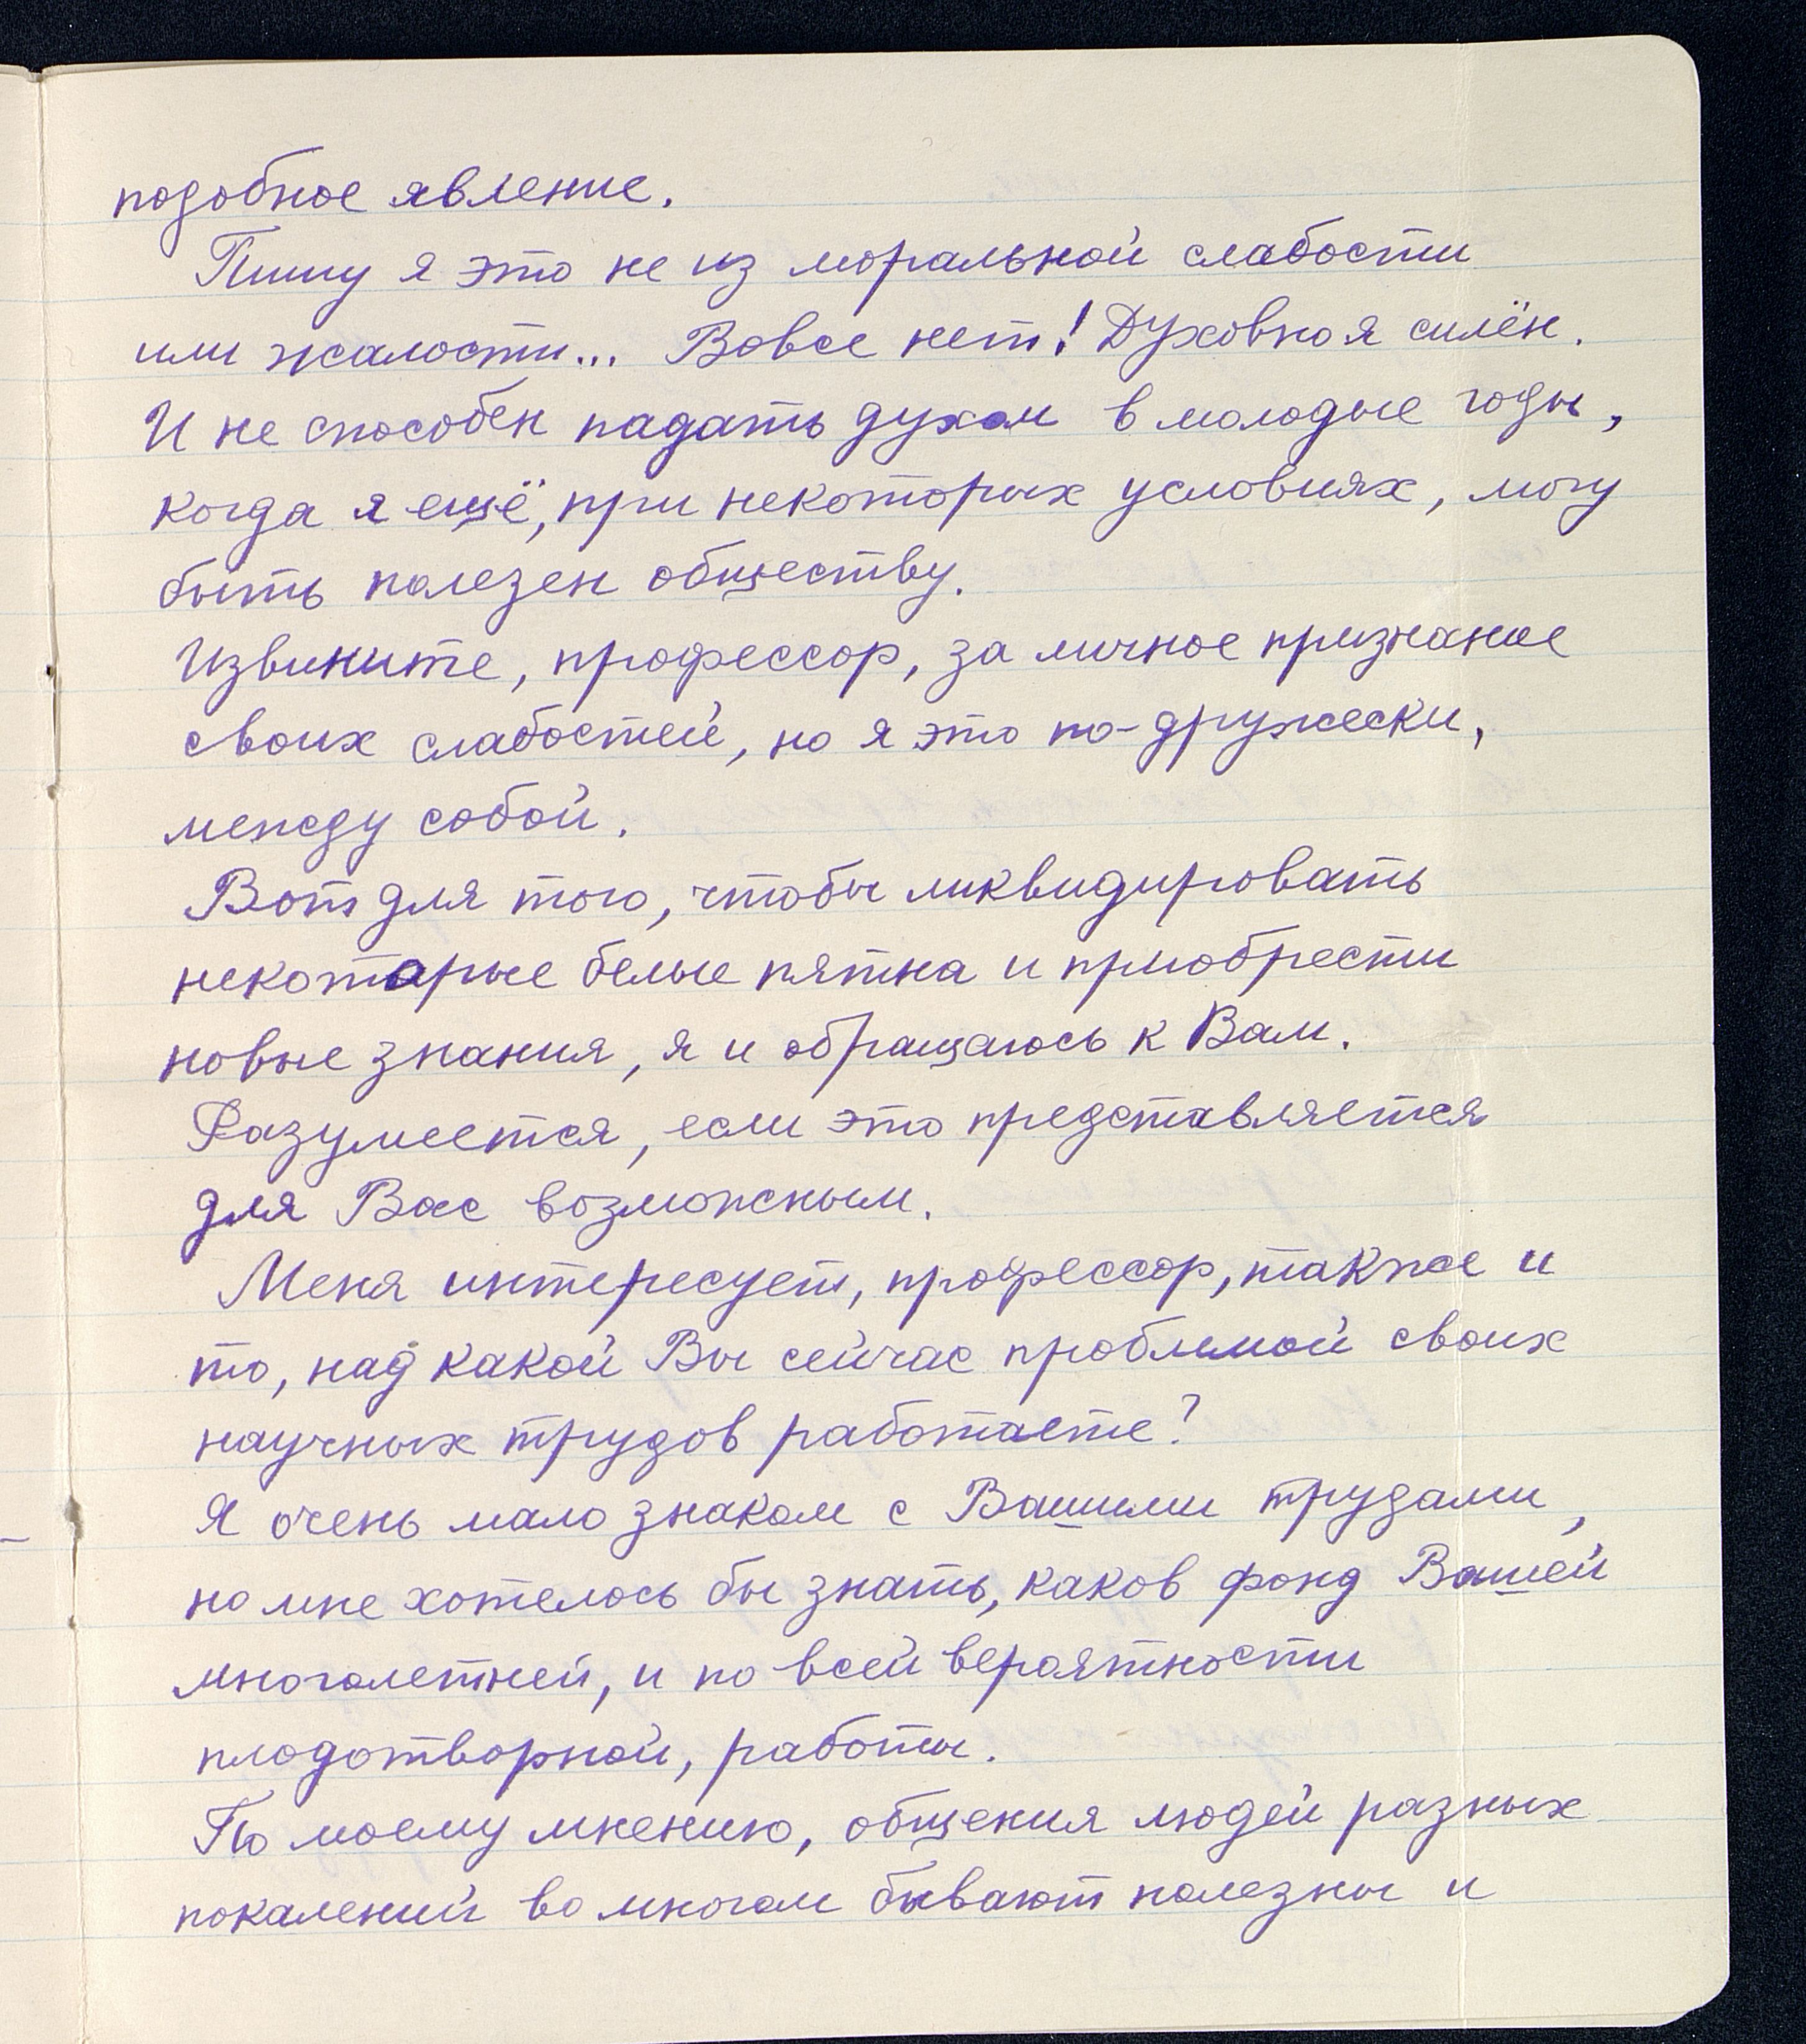 подобное явление.
Пишу я это не из моральной слабости
или жалости... Вовсе нет! Духовно я силён.
И не способен падать духом в молодые годы,
когда я ещё, при некоторых условиях, могу
быть полезен обществу.
Извините, профессор, за личное признание
своих слабостей, но я это по-дружески,
между собой.
Вот для того, чтобы ликвидировать
некоторые белые пятна и приобрести
новые знания, я и обращаюсь к Вам.
Разумеется, если это представляется
для Вас возможным.
Меня интересует, профессор, также и
то, над какой Вы сейчас проблемой своих
научных трудов работаете?
Я очень мало знаком с Вашими трудами,
но мне хотелось бы знать, каков фонд Вашей
многолетней, и по всей вероятности
плодотворной, работы.
По моему мнению, общения людей разных
покалений во многом бывают полезны и